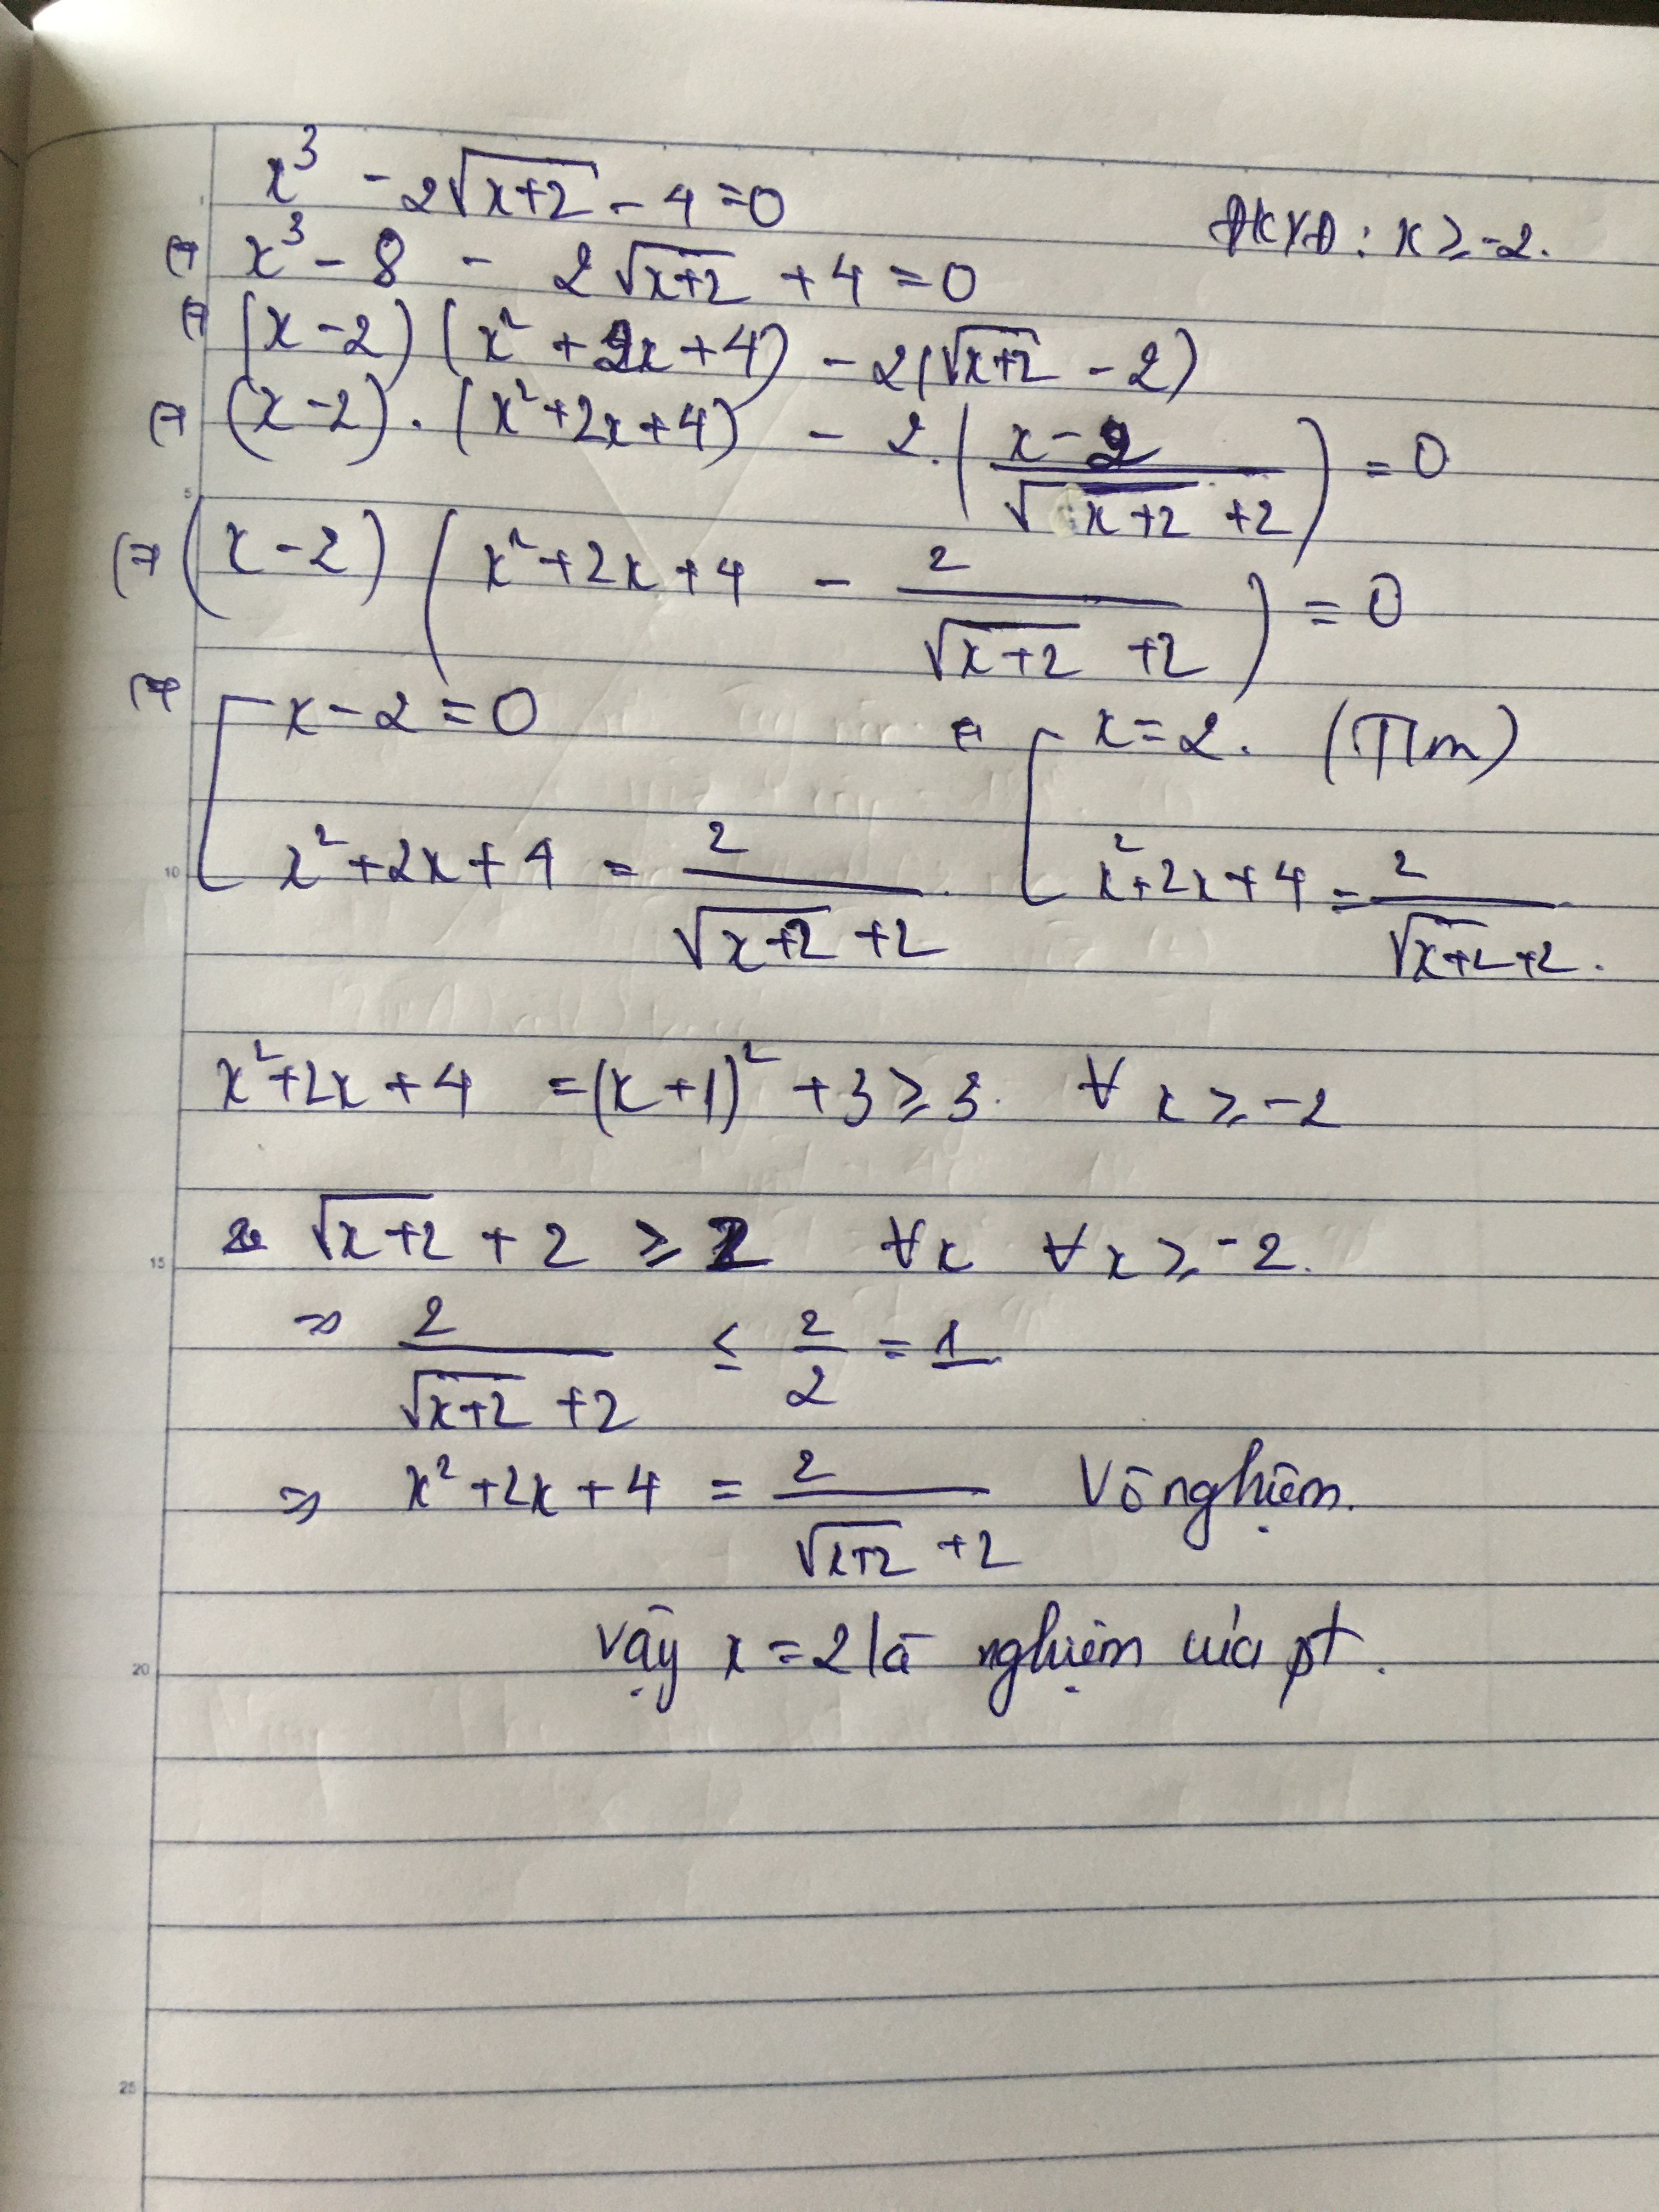 x³ - 2√(x+2) - 4 = 0
ĐKXĐ: x ≥ -2.
⇔ x³ - 8 - 2√(x+2) + 4 = 0
⇔ (x-2)(x² + 2x + 4) - 2(√(x+2) - 2)
⇔ (x-2).(x²+2x+4) - 2.((x-2)/(√(x+2) +2)) = 0
⇔ (x-2)(x²+2x+4 - 2/(√(x+2) +2)) = 0
⇔ [ x-2 = 0 ⇔ [ x = 2. (TM)
x²+2x+4 = 2/(√(x+2) +2) x²+2x+4 = 2/(√(x+2) +2).
x²+2x+4 = (x+1)² + 3 ≥ 3. ∀ x ≥ -2
√(x+2) + 2 ≥ 2 ∀x ∀x ≥ -2.
⇒ 2/(√(x+2) +2) ≤ 2/2 = 1
⇒ x²+2x+4 = 2/(√(x+2) +2) Vô nghiệm.
Vậy x = 2 là nghiệm của pt.
5
10
15
20
25